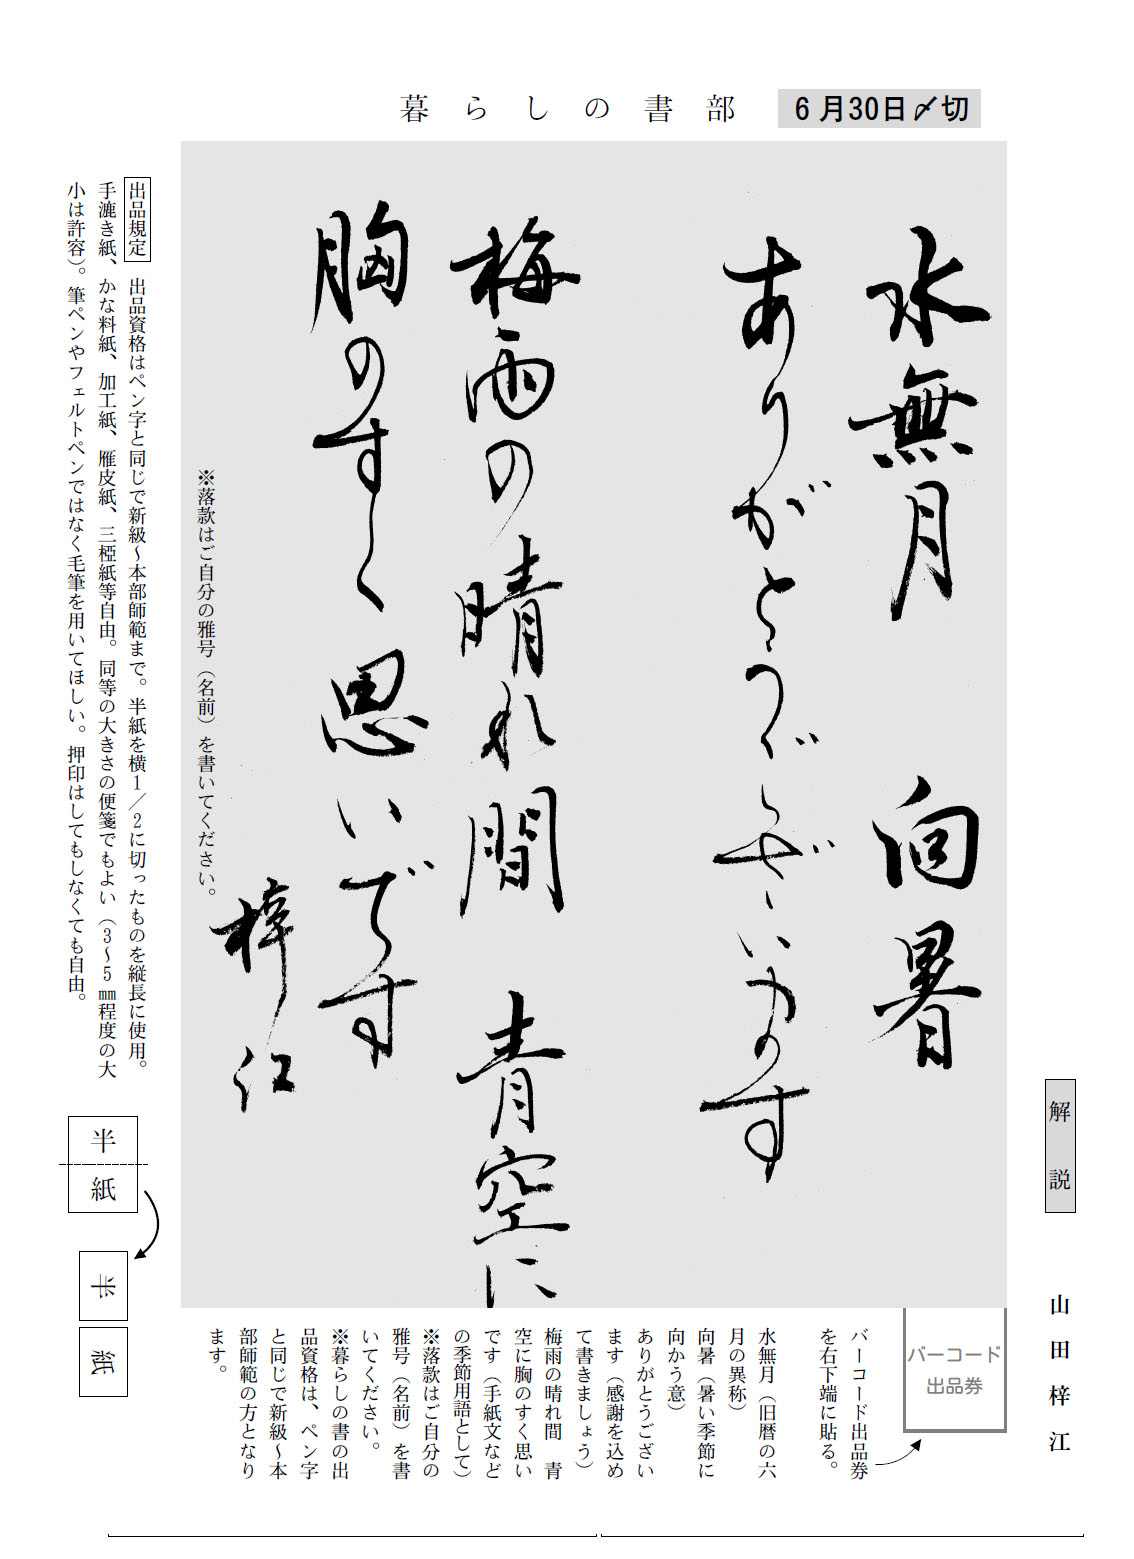 暮らしの書部
6月30日〆切
水無月　向暑
ありがとうございます
梅雨の晴れ間　青空に
胸のすく思いです
梓江
※落款はご自分の雅号（名前）を書いてください。
出品規定　出品資格はペン字と同じで新級～本部師範まで。半紙を横１／２に切ったものを縦長に使用。
手漉き紙、かな料紙、加工紙、雁皮紙、三椏紙等自由。同等の大きさの便箋でもよい（３～５㎜程度の大
小は許容）。筆ペンやフェルトペンではなく毛筆を用いてほしい。押印はしてもしなくても自由。
半
紙
半
紙
解説
山田梓江
バーコード
出品券
バーコード出品券
を右下端に貼る。
水無月（旧暦の六
月の異称）
向暑（暑い季節に
向かう意）
ありがとうござい
ます（感謝を込め
て書きましょう）
梅雨の晴れ間　青
空に胸のすく思い
です（手紙文など
の季節用語として）
※落款はご自分の
雅号（名前）を書
いてください。
※暮らしの書の出
品資格は、ペン字
と同じで新級～本
部師範の方となり
ます。